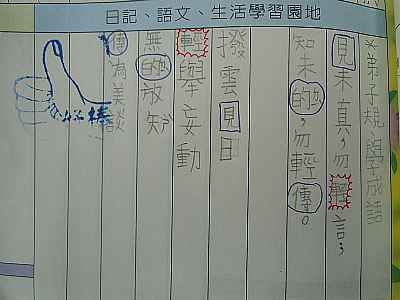 日記、語文、生活學習園地
*弟子規學成語
見未真,勿輕言;
知未的,勿輕傳。
撥雲見日
輕舉妄動
無的放矢
傳為美談